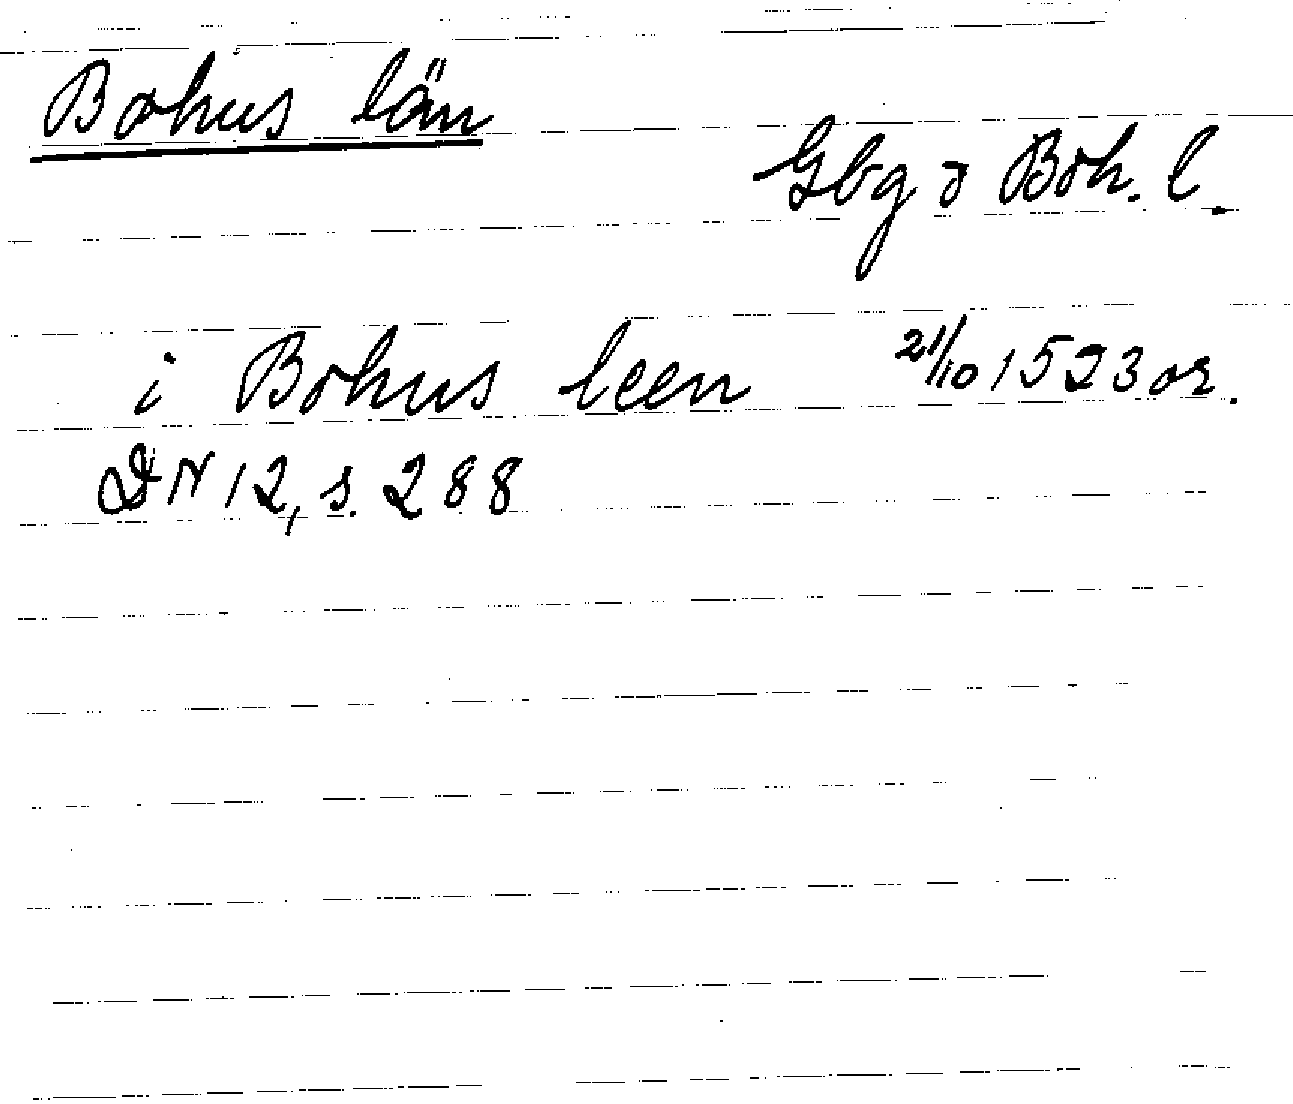 Bohus län
Gbg o Boh. l.
i Bohus leen 21/10 1523 or.
DN 12, s. 288